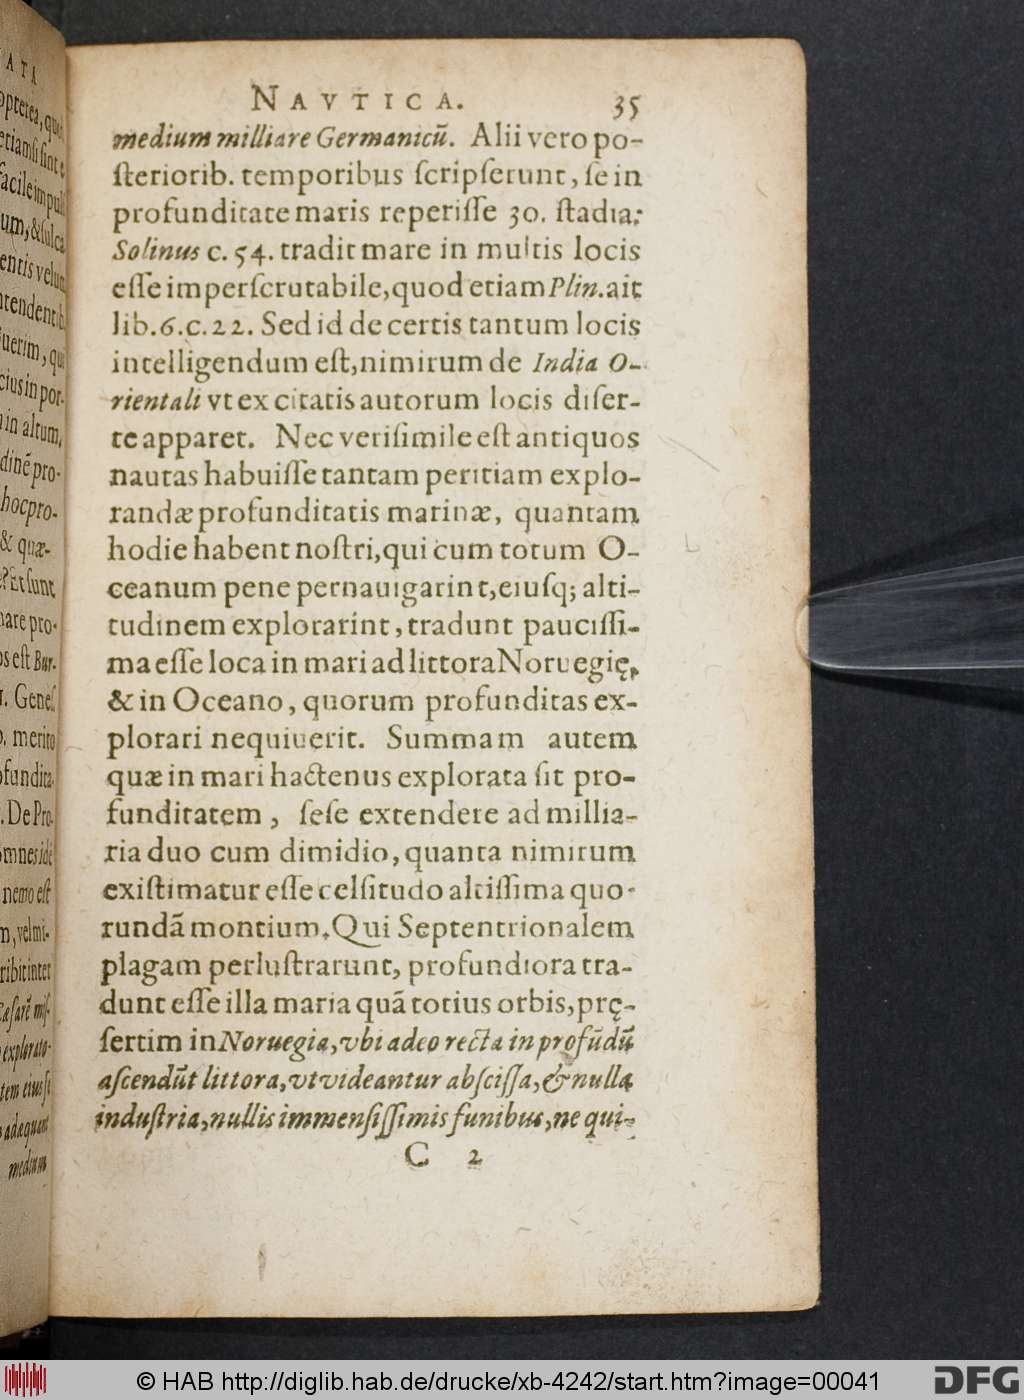 NAVTICA. 35
medium milliare Germanicū. Alii vero po-
ſteriorib. temporibus ſcripſerunt, ſe in
profunditate maris reperiſſe 30. ſtadia:
Solinus c. 54. tradit mare in multis locis
eſſe imperſcrutabile, quod etiam Plin. ait
lib. 6. c. 22. Sed id de certis tantum locis
intelligendum eſt, nimirum de India O-
rientali vt ex citatis autorum locis diſer-
te apparet. Nec veriſimile eſt antiquos
nautas habuiſſe tantam peritiam explo-
randæ profunditatis marinæ, quantam
hodie habent noſtri, qui cum totum O-
ceanum pene pernauigarint, eiuſq; alti-
tudinem explorarint, tradunt pauciſſi-
ma eſſe loca in mari ad littora Noruegię,
& in Oceano, quorum profunditas ex-
plorari nequiuerit. Summam autem
quæ in mari hactenus explorata ſit pro-
funditatem, ſeſe extendere ad millia-
ria duo cum dimidio, quanta nimirum
exiſtimatur eſſe celſitudo altiſſima quo-
rundā montium. Qui Septentrionalem
plagam perluſtrarunt, profundiora tra-
dunt eſſe illa maria quā totius orbis, prę-
ſertim in Noruegia, vbi adeo recta in profūdū
aſcendūt littora, vt videantur abſciſſa, & nulla
induſtria, nullis immenſiſſimis funibus, ne qui-
C 2
© HAB http://diglib.hab.de/drucke/xb-4242/start.htm?image=00041
DFG